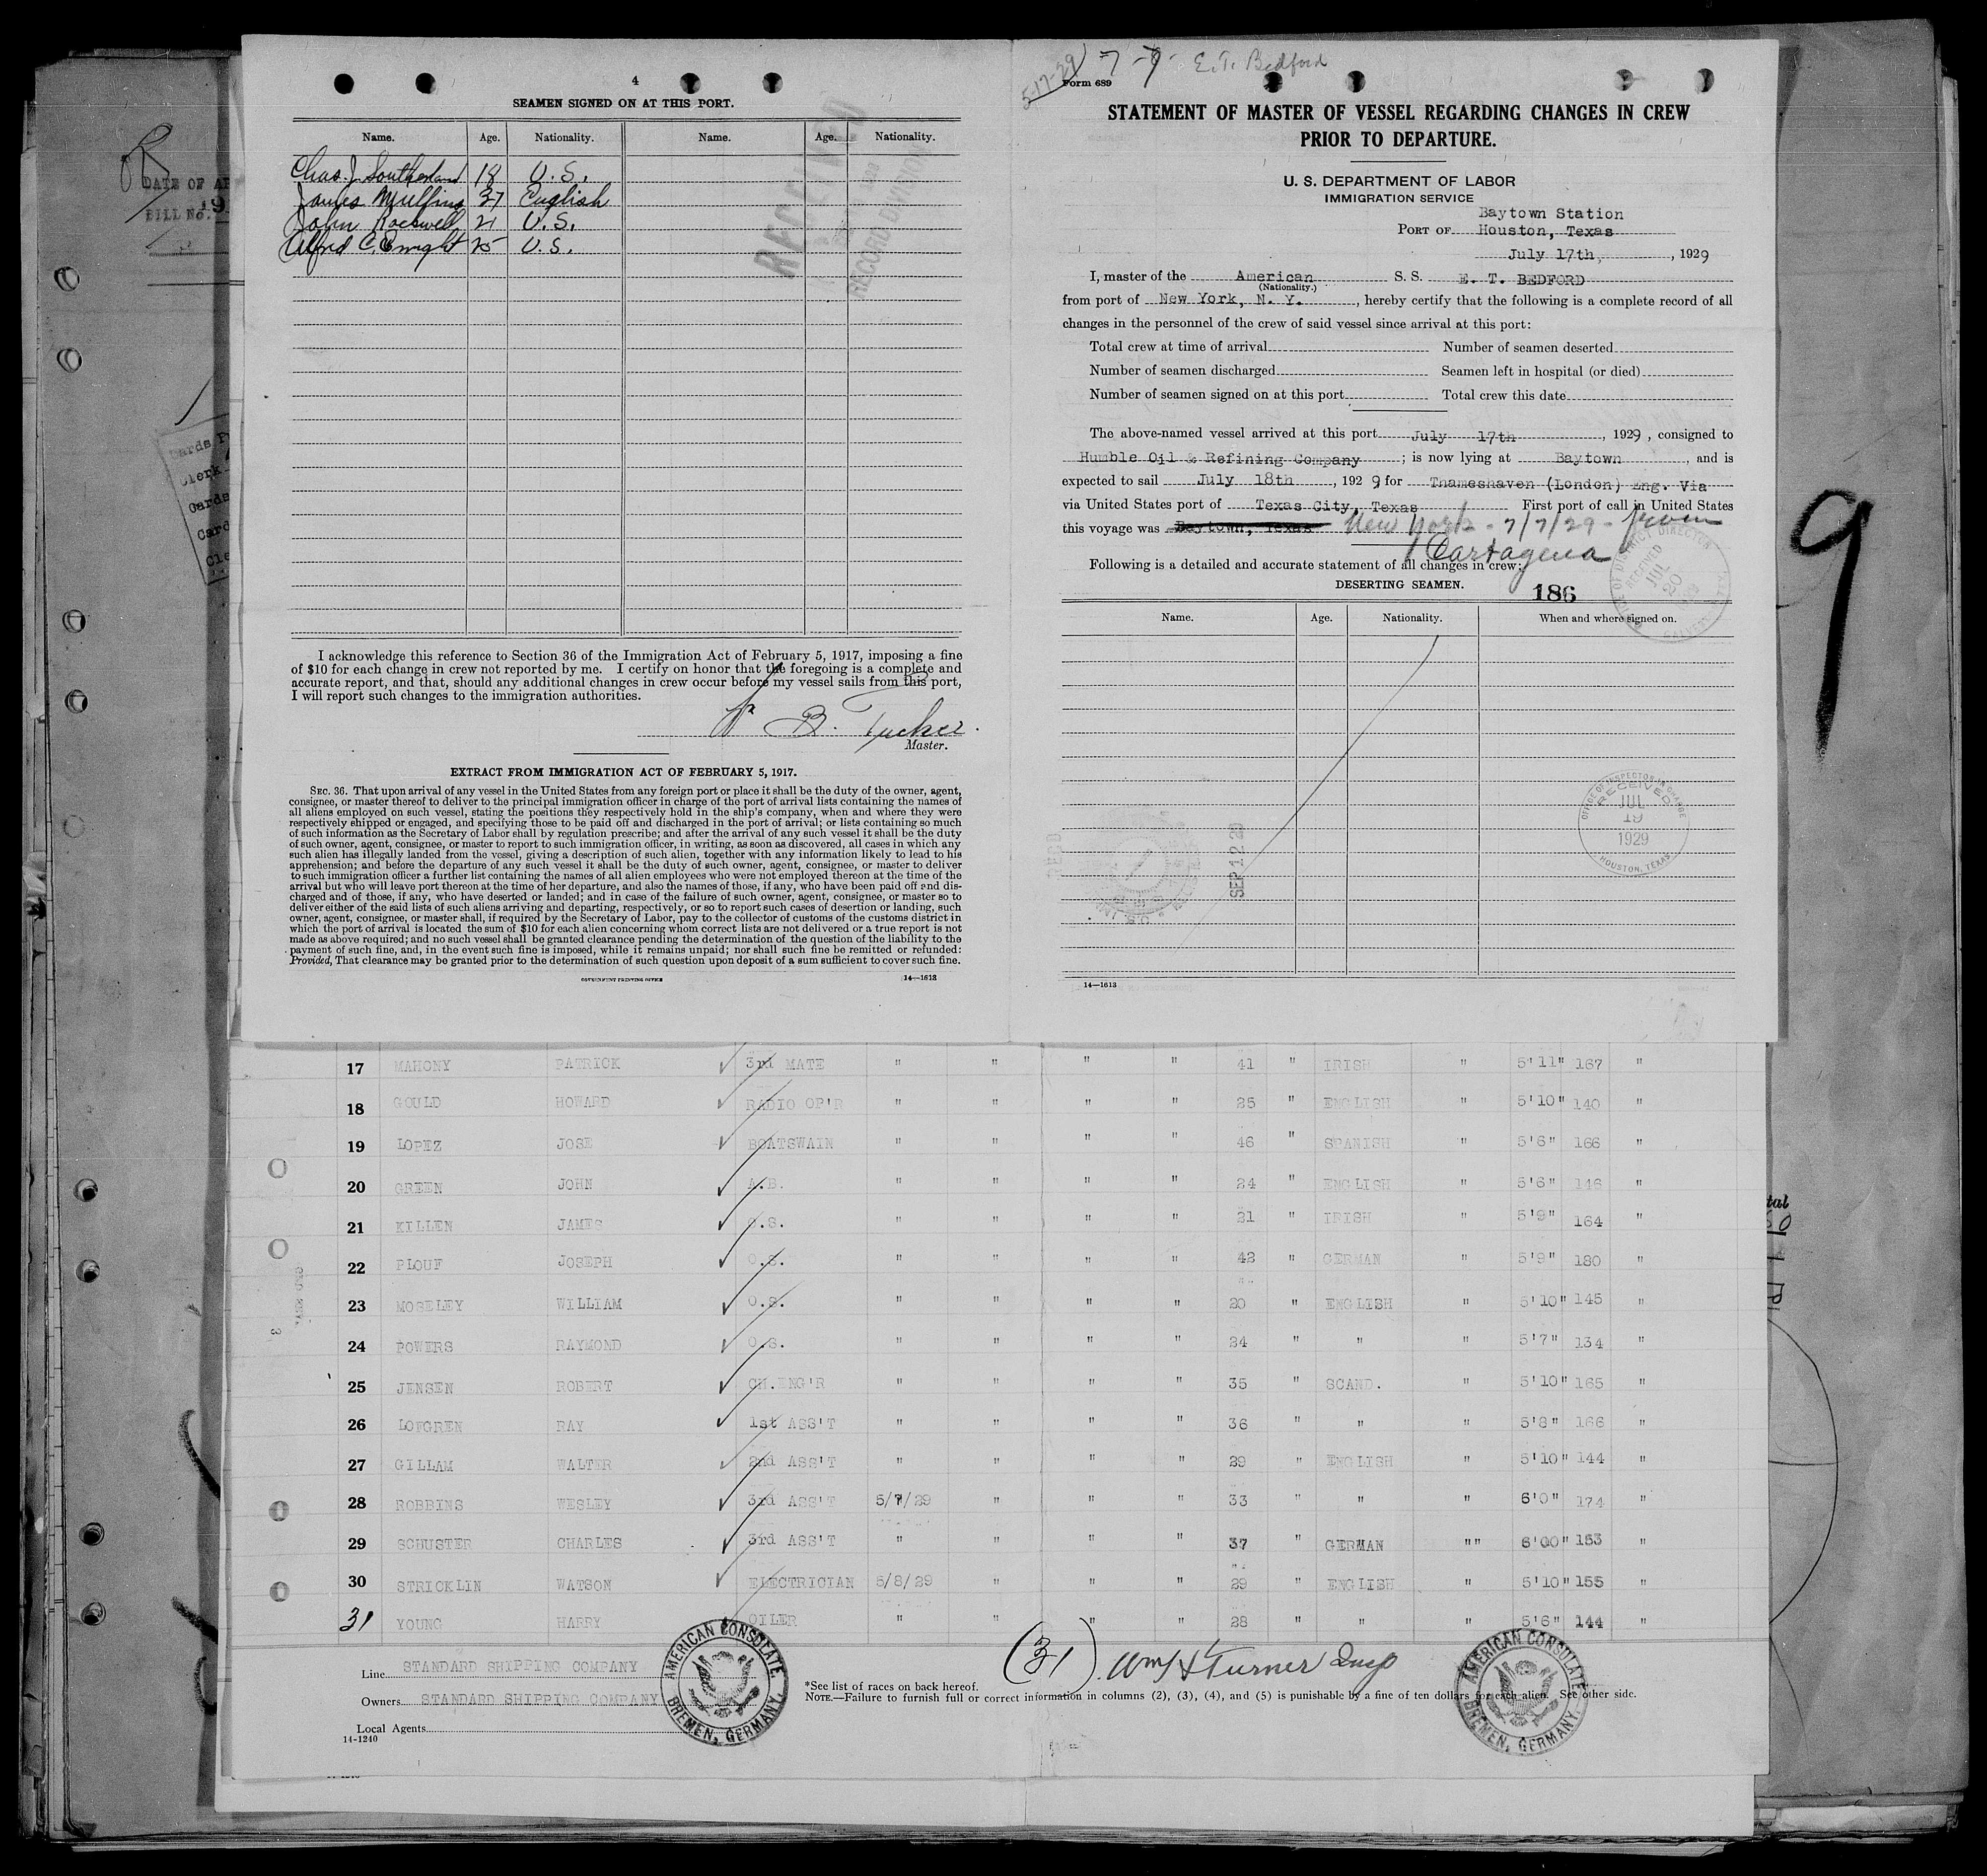 4
SEAMEN SIGNED ON AT THIS PORT.
Name. Age. Nationality. Name. Age. Nationality.
Chas. J. Southerland 18 U.S.
James Mullins 37 English
John Rockwell 21 U.S.
Alfred C. Enright 25 U.S.
RECEIVED
RECORD DIVISION
I acknowledge this reference to Section 36 of the Immigration Act of February 5, 1917, imposing a fine
of $10 for each change in crew not reported by me. I certify on honor that the foregoing is a complete and
accurate report, and that, should any additional changes in crew occur before my vessel sails from this port,
I will report such changes to the immigration authorities.
B. Tucker
Master.
EXTRACT FROM IMMIGRATION ACT OF FEBRUARY 5, 1917.
SEC. 36. That upon arrival of any vessel in the United States from any foreign port or place it shall be the duty of the owner, agent,
consignee, or master thereof to deliver to the principal immigration officer in charge of the port of arrival lists containing the names of
all aliens employed on such vessel, stating the positions they respectively hold in the ship's company, when and where they were
respectively shipped or engaged, and specifying those to be paid off and discharged in the port of arrival; or lists containing so much
of such information as the Secretary of Labor shall by regulation prescribe; and after the arrival of any such vessel it shall be the duty
of such owner, agent, consignee, or master to report to such immigration officer, in writing, as soon as discovered, all cases in which any
such alien has illegally landed from the vessel, giving a description of such alien, together with any information likely to lead to his
apprehension; and before the departure of any such vessel it shall be the duty of such owner, agent, consignee, or master to deliver
to such immigration officer a further list containing the names of all alien employees who were not employed thereon at the time of the
arrival but who will leave port thereon at the time of her departure, and also the names of those, if any, who have been paid off and dis-
charged and of those, if any, who have deserted or landed; and in case of the failure of such owner, agent, consignee, or master so to
deliver either of the said lists of such aliens arriving and departing, respectively, or so to report such cases of desertion or landing, such
owner, agent, consignee, or master shall, if required by the Secretary of Labor, pay to the collector of customs of the customs district in
which the port of arrival is located the sum of $10 for each alien concerning whom correct lists are not delivered or a true report is not
made as above required; and no such vessel shall be granted clearance pending the determination of the question of the liability to the
payment of such fine, and, in the event such fine is imposed, while it remains unpaid; nor shall such fine be remitted or refunded:
Provided, That clearance may be granted prior to the determination of such question upon deposit of a sum sufficient to cover such fine.
GOVERNMENT PRINTING OFFICE 14—1613
5-17-29 7-7- E.T. Bedford
Form 689
STATEMENT OF MASTER OF VESSEL REGARDING CHANGES IN CREW
PRIOR TO DEPARTURE.
U. S. DEPARTMENT OF LABOR
IMMIGRATION SERVICE
Baytown Station
PORT OF Houston, Texas
July 17th, , 1929
I, master of the American S. S. E. T. BEDFORD
(Nationality.)
from port of New York, N. Y. , hereby certify that the following is a complete record of all
changes in the personnel of the crew of said vessel since arrival at this port:
Total crew at time of arrival Number of seamen deserted
Number of seamen discharged Seamen left in hospital (or died)
Number of seamen signed on at this port Total crew this date
The above-named vessel arrived at this port July 17th , 1929 , consigned to
Humble Oil & Refining Company ; is now lying at Baytown , and is
expected to sail July 18th , 192 9 for Thameshaven (London) Eng. Via
via United States port of Texas City, Texas First port of call in United States
this voyage was Baytown, Texas New York - 7/7/29 - from
Cartagena
Following is a detailed and accurate statement of all changes in crew:
DESERTING SEAMEN. 186
Name. Age. Nationality. When and where signed on.
OFFICE OF DISTRICT DIRECTOR
RECEIVED
JUL
20
OFFICE OF INSPECTOR IN CHARGE
RECEIVED
JUL
19
1929
HOUSTON, TEXAS
SEP 12 29
14—1613
9
17 MAHONY PATRICK 3rd MATE " " " " 41 " IRISH " 5'11" 167 "
18 GOULD HOWARD RADIO OP'R " " " " 25 " ENGLISH " 5'10" 140 "
19 LOPEZ JOSE BOATSWAIN " " " " 46 " SPANISH " 5'6" 166 "
20 GREEN JOHN A.B. " " " " 24 " ENGLISH " 5'6" 146 "
21 KILLEN JAMES O.S. " " " " 21 " IRISH " 5'9" 164 "
22 PLOUF JOSEPH O.S. " " " " 42 " GERMAN " 5'9" 180 "
23 MOSELEY WILLIAM O.S. " " " " 20 " ENGLISH " 5'10" 145 "
24 POWERS RAYMOND O.S. " " " " 24 " " " 5'7" 134 "
25 JENSEN ROBERT CH.ENG'R " " " " 35 " SCAND. " 5'10" 165 "
26 LOFGREN RAY 1st ASS'T " " " " 36 " " " 5'8" 166 "
27 GILLAM WALTER 2nd ASS'T " " " " 29 " ENGLISH " 5'10" 144 "
28 ROBBINS WESLEY 3rd ASS'T 5/7/29 " " " 33 " " " 6'0" 174 "
29 SCHUSTER CHARLES 3rd ASS'T " " " " 37 " GERMAN "" 6'00" 153 "
30 STRICKLIN WATSON ELECTRICIAN 5/8/29 " " " 29 " ENGLISH " 5'10" 155 "
31 YOUNG HARRY OILER " " " " 28 " " " 5'6" 144 "
Line STANDARD SHIPPING COMPANY
Owners STANDARD SHIPPING COMPANY
Local Agents
14-1240
AMERICAN CONSULATE, BREMEN, GERMANY.
(31) Wm H Turner Insp
*See list of races on back hereof.
NOTE.—Failure to furnish full or correct information in columns (2), (3), (4), and (5) is punishable by a fine of ten dollars for each alien. See other side.
AMERICAN CONSULATE, BREMEN, GERMANY.